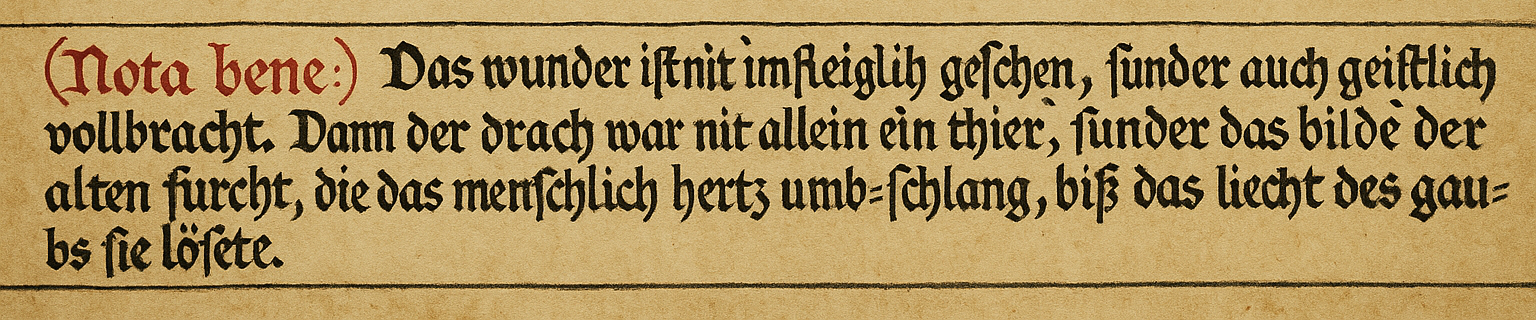 (Nota bene:) Das wunder iſt nit imfleiglih geſchen, ſunder auch geiſtlich
vollbracht. Dann der drach war nit allein ein thier, ſunder das bilde der
alten furcht, die das menſchlich hertz umb=ſchlang, biß das liecht des gau=
bs ſie löſete.